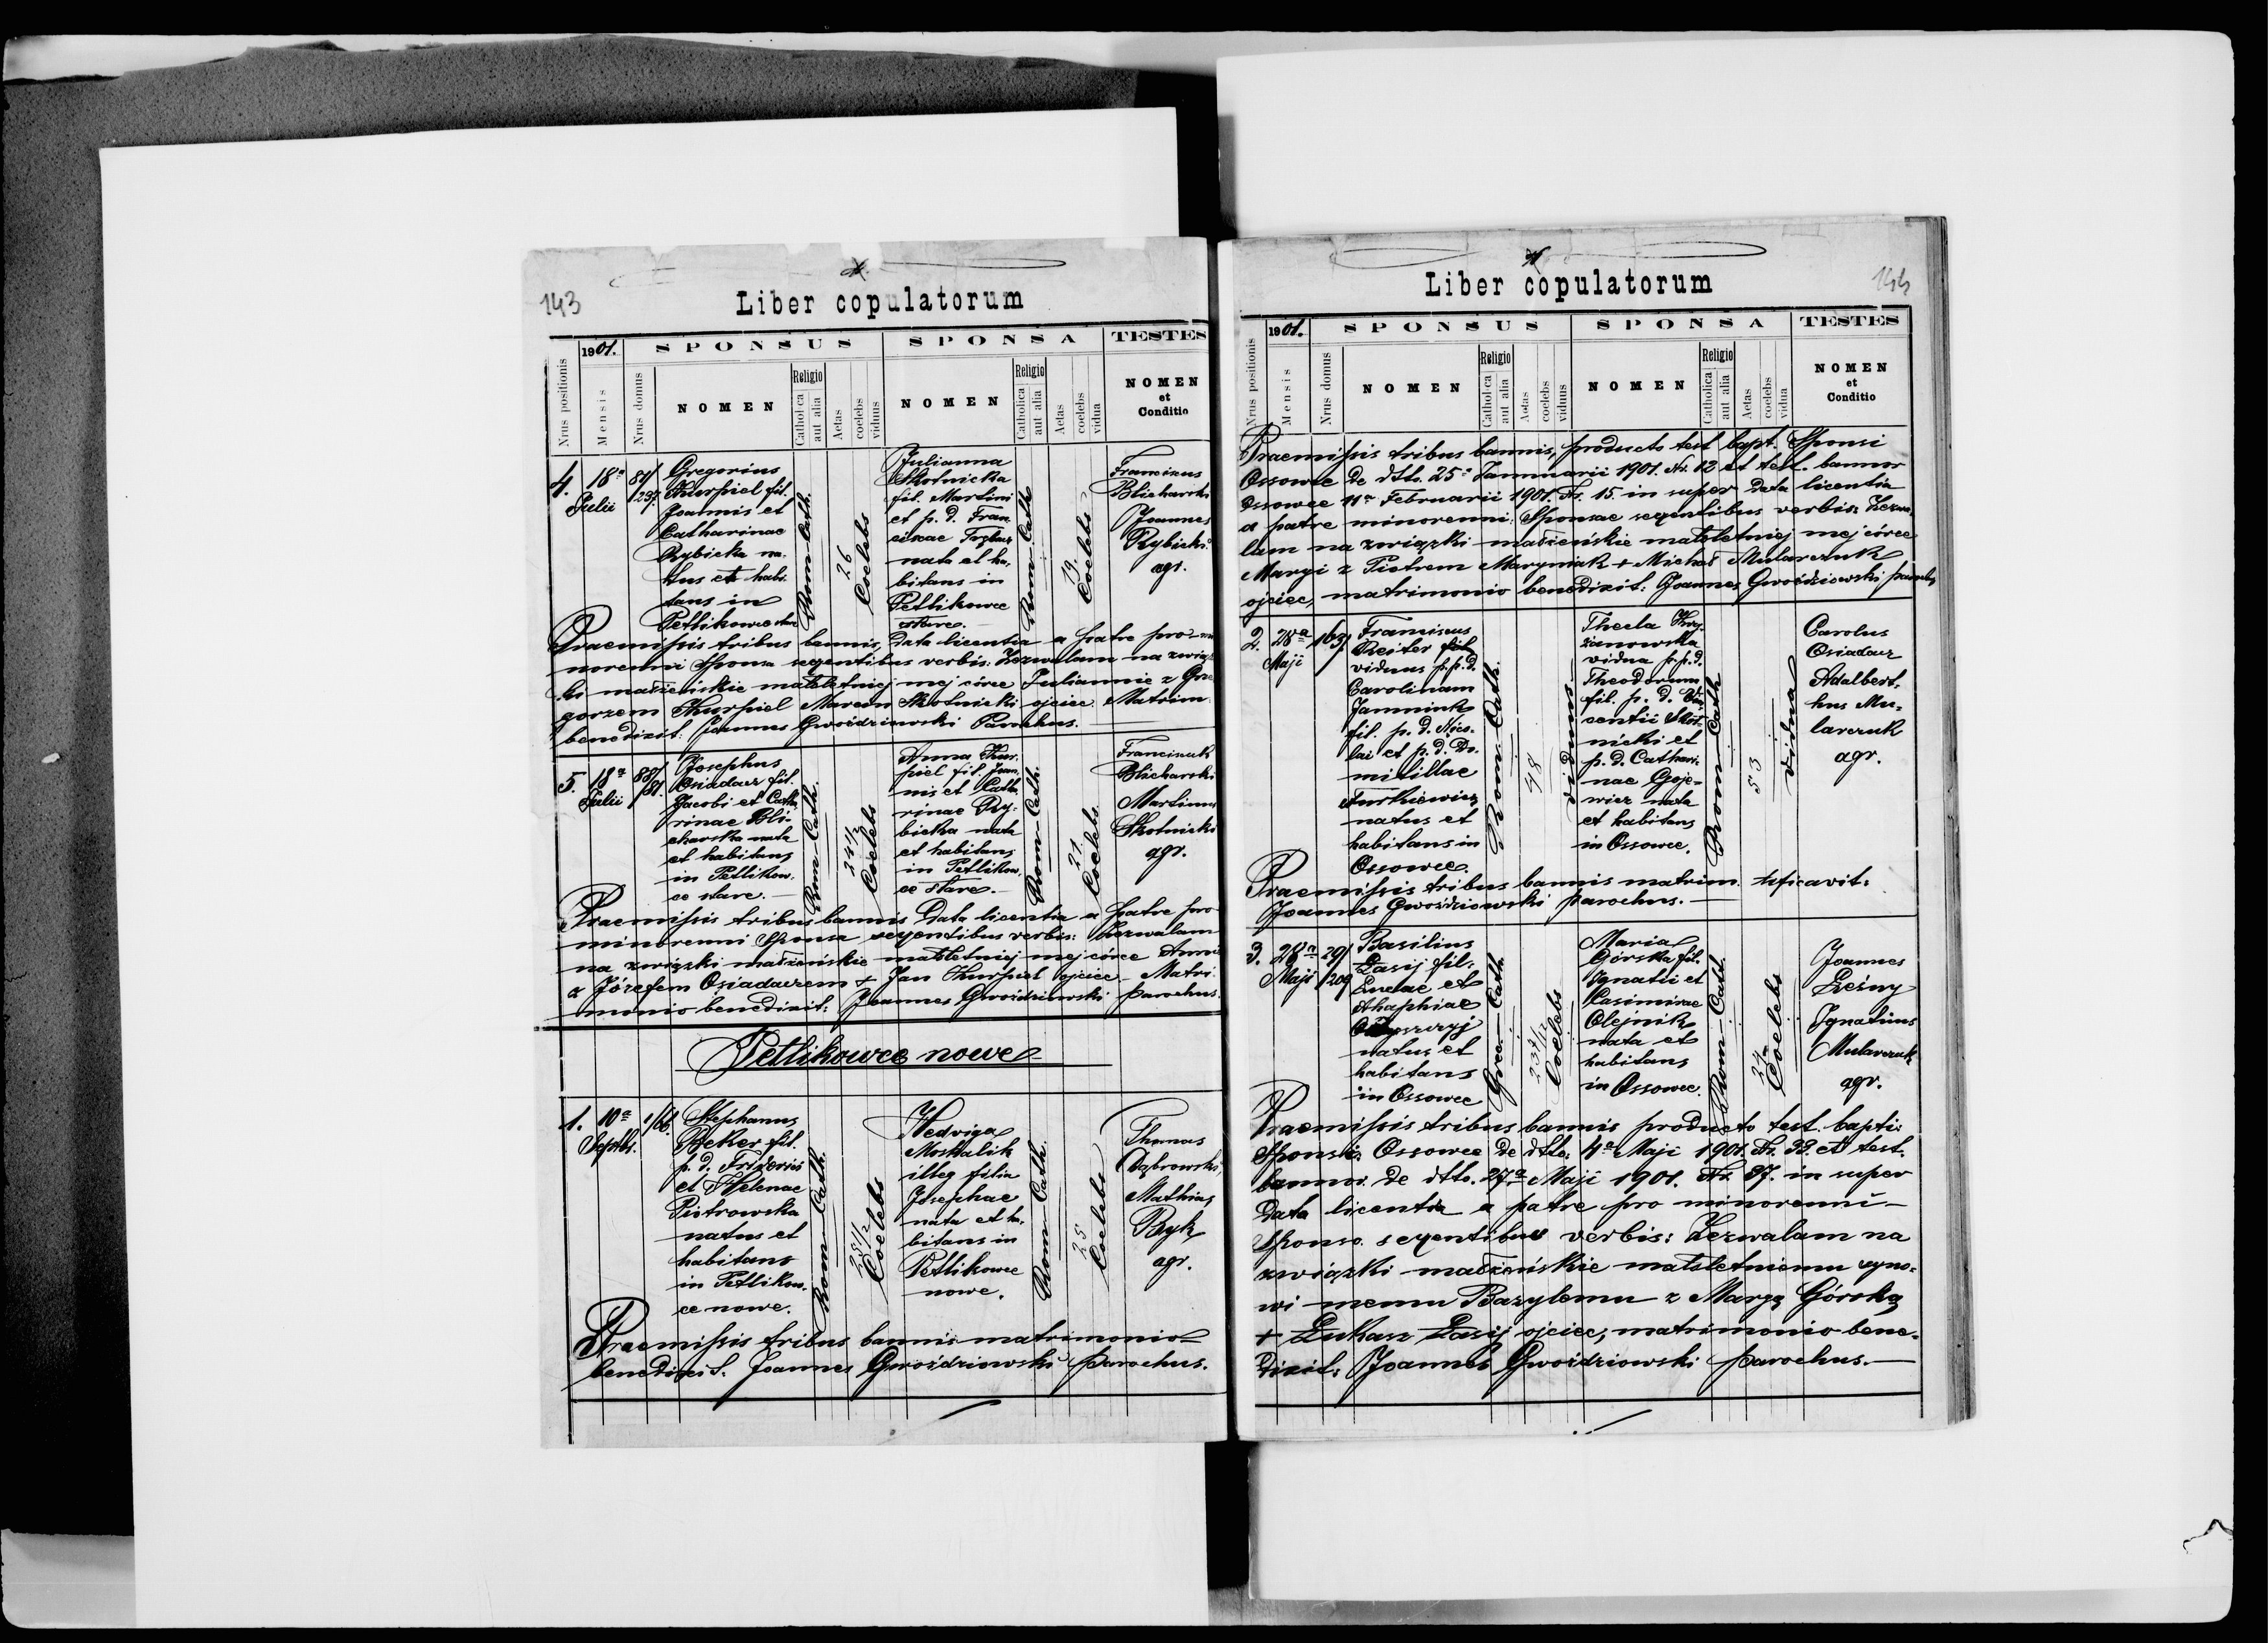 143
Liber copulatorum
1901.
SPONSUS
SPONSA
TESTES
Nrus positionis
Mensis
Nrus domus
NOMEN
Religio
Catholica
aut alia
Aetas
coelebs
viduus
NOMEN
Religio
Catholica
aut alia
Aetas
coelebs
vidua
NOMEN
et
Conditio
4.
18a
Julii
81/
237.
Gregorius
Kurpiel fil.
Joannis et
Catharinae
Rybicka na-
tus et habi-
tans in
Petlikowce stare
Rom. Cath.
26
Coelebs
Julianna
Skotnicka
fil. Martini
et p. d. Fran
ciscae
nata et ha-
bitans in
Petlikowce
stare.
Rom. Cath
19.
Coelebs
Franciscus
Blicharski
Joannes
Rybicki
agr.
Praemissis tribus bannis, data licentia a patre pro mi
norenni sponsa seqentibus verbis: Zezwalam na związ
ki małżeńskie małoletniej mej córce Juliannie z Grze
gorzem Kurpiel Marcin Skotnicki ojciec Matrim.
benedixit: Joannes Gwoździowski Parochus.
5.
18a
Julii
88/
81.
Josephus
Osiadacz fil.
Jacobi et Catha
rinae Bli-
charska nata
et habitans
in Petlikow-
ce stare.
Rom. Cath.
24 1/2
Coelebs
Anna Kur-
piel fil. Joan
nis et Catha
rinae Ry-
bicka nata
et habitans
in Petlikow
ce stare.
Rom. Cath.
21.
Coelebs
Franciscuk
Blicharski
Martinus
Skotnicki
agr.
Praemissis tribus bannis Data licentia a patre pro
minorenni Sponsa seqentibus verbis: Zezwalam
na związki małżeńskie małoletniej mej córce Annie
z Józefem Osiadaczem + Jan Kurpiel ojciec - Matri-
monio benedixit: Joannes Gwoździowski parochus.
Petlikowce nowe
1.
10a
Septbr.
1/66.
Stephanus
Beker fil.
p. d. Friderici
et Helenae
Piotrowska
natus et
habitans
in Petlikow-
ce nowe.
Rom. Cath.
Coelebs
Hedviga
Moskalik
illeg filia
Josephae
nata et ha-
bitans in
Petlikowce
nowe.
Rom. Cath.
25
Coelebs
Thomas
Dąbrowski,
Mathias
Byk
agr.
Praemissis tribus bannis matrimonio
benedixit. Joannes Gwoździowski parochus.
144
Liber copulatorum
1901.
SPONSUS
SPONSA
TESTES
Nrus positionis
Mensis
Nrus domus
NOMEN
Religio
Catholica
aut alia
Aetas
coelebs
viduus
NOMEN
Religio
Catholica
aut alia
Aetas
coelebs
vidua
NOMEN
et
Conditio
Praemissis tribus bannis, producto test bapt. Sponsi
Ossowce de dtto. 25a Januarii 1901. Nr. 12 et test. bannor
Ossowce 11a Februarii 1901. Nr. 15. in super data licentia
a patre minorenni: Sponsae seqentibus verbis: Zezwa
lam na związki małżeńskie małoletniej mej córce
Maryi z Piotrem Maryniak + Michał Mularczuk
ojciec, matrimonio benedixit: Joannes Gwoździowski parochus
2.
28va
Maji
163/
Franciscus
Reiter
viduus p. p. d.
Carolinam
Jamniuk
fil. p. d. Nico-
lai et p. d. Do-
mitillae
Turkiewicz
natus et
habitans in
Ossowce.
Rom. Cath.
48
viduus
Thecla
vidua p. p. d.
Theodorum
fil. p. d.
centii Skot-
nicki et
p. d. Cathari
nae Goje-
wicz nata
et habitans
in Ossowce.
Rom. Cath
53
vidua
Carolus
Osiadacz
Adalbert,
hus Mu-
larczuk
agr.
Praemissis tribus bannis matrim. tificavit:
Joannes Gwoździowski parochus.
3.
28va
Maji
29/
209
Basilius
Łasij fil.
Lucae et
Ahaphiae
natus et
habitans
in Ossowce
Grec. Cath.
Coelebs
Maria
Górska fil.
Ignatii et
Casimirae
Olejnik
nata et
habitans
in Ossowce.
Rom. Cath.
24
Coelebs
Joannes
Leśny
Ignatius
Mularczuk
agr.
Praemissis tribus bannis producto test. bapti:
Sponsi: Ossowce de dtto: 4a Maji 1901. Nr. 33. et test.
bannor. de dtto. 27a Maji 1901. Nr. 37. in super
data licentia a patre pro minorenni
Sponso seqentibus verbis: Zezwalam na
związki małżeńskie małoletniemu syno-
wi memu Bazylemu z Maryą Górską
+ Łukasz Łasij ojciec, matrimonio bene-
dixit: Joannes Gwoździowski parochus.